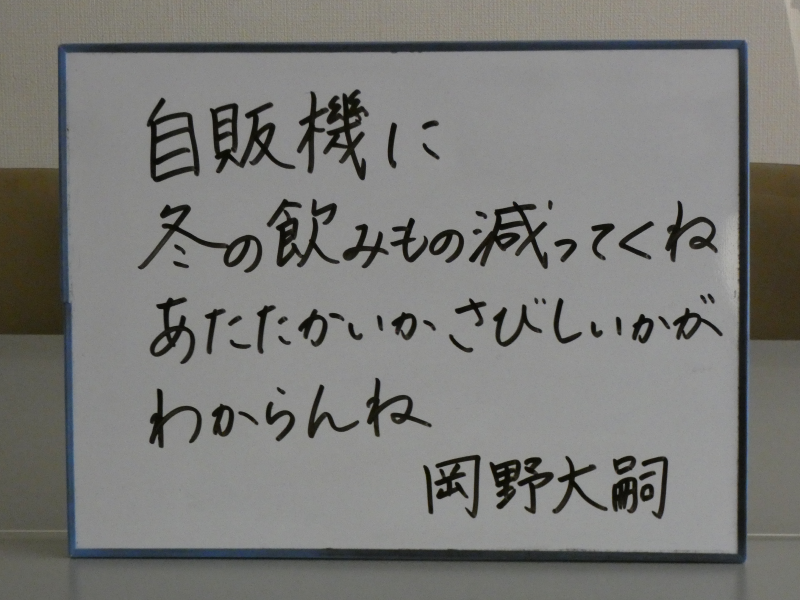 自販機に
冬の飲みもの減ってくね
あたたかいかさびしいかが
わからんね
岡野大嗣